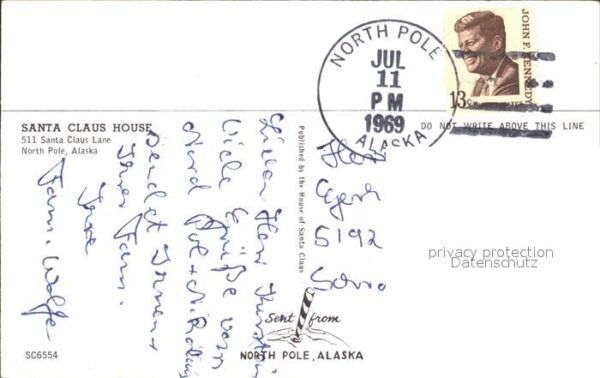 NORTH POLE
JUL
11
PM
1969
ALASKA
JOHN F. KENNEDY
13c
SANTA CLAUS HOUSE
511 Santa Claus Lane
North Pole, Alaska
DO NOT WRITE ABOVE THIS LINE
Herr
Viele Grüße vom
Nord Pol
sendet Ihnen u
Ihrer Fam.
Ihre
Fam. Wolfe
Published by the House of Santa Claus
Herr
5192
privacy protection
Datenschutz
Sent from
NORTH POLE, ALASKA
SC6554